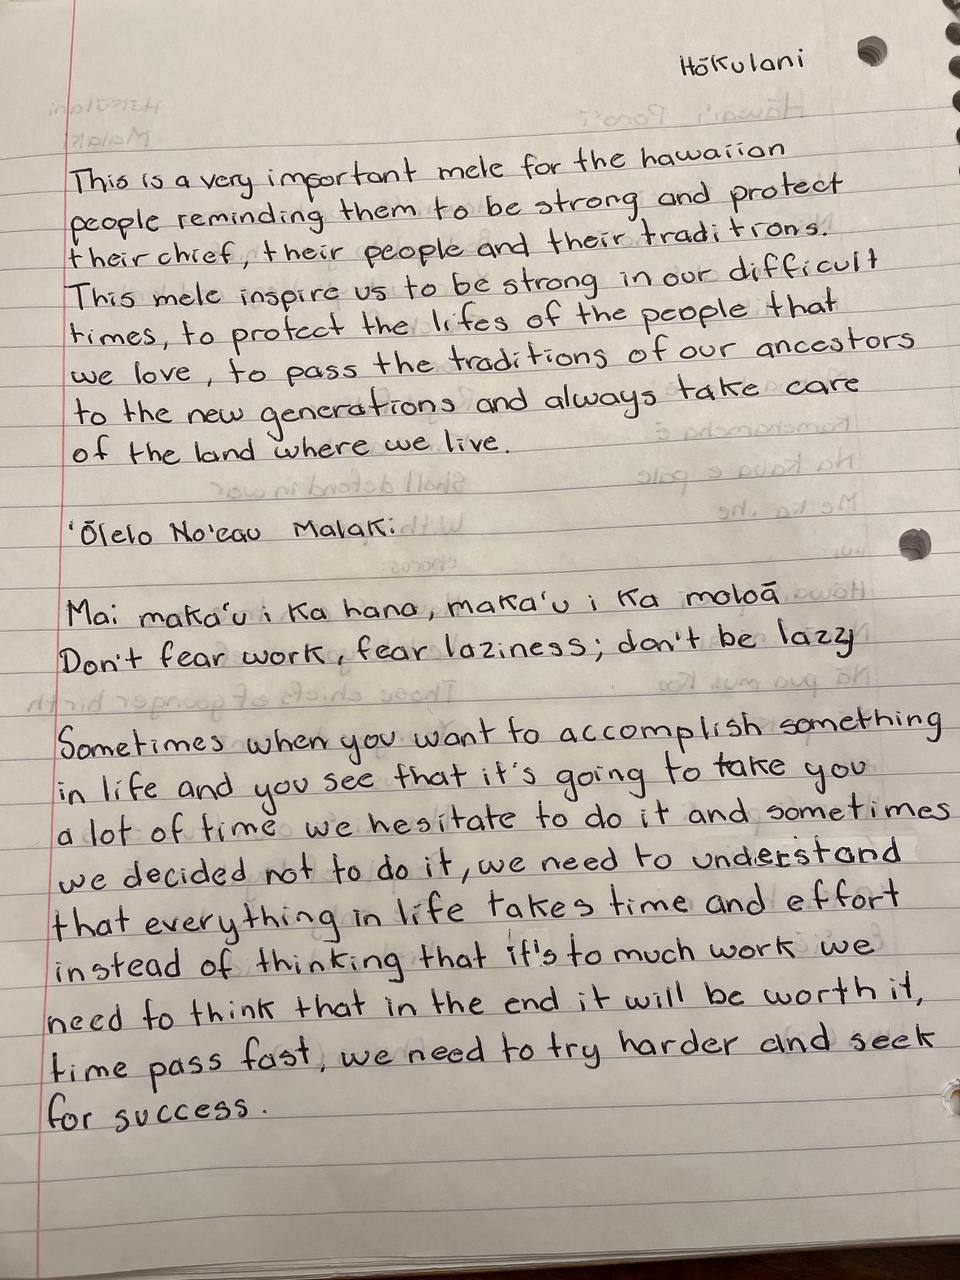 Hōkulani
This is a very important mele for the hawaiian
people reminding them to be strong and protect
their chief, their people and their traditions.
This mele inspire us to be strong in our difficult
times, to protect the lifes of the people that
we love, to pass the traditions of our ancestors
to the new generations and always take care
of the land where we live.
'Ōlelo No'eau Malaki:
Mai maka'u i ka hana, maka'u i ka moloā
Don't fear work, fear laziness; don't be lazy
Sometimes when you want to accomplish something
in life and you see that it's going to take you
a lot of time we hesitate to do it and sometimes
we decided not to do it, we need to understand
that everything in life takes time and effort
instead of thinking that it's to much work we
need to think that in the end it will be worth it,
time pass fast, we need to try harder and seek
for success.